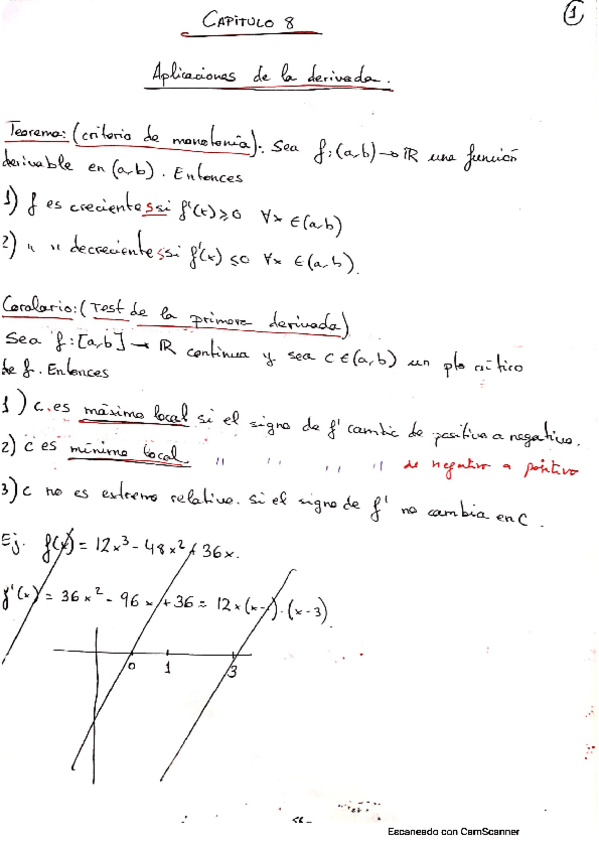 ①
CAPÍTULO 8
Aplicaciones de la derivada.
Teorema: (criterio de monotonía). Sea f: (a,b) → ℝ una función
derivable en (a,b). Entonces
1) f es creciente ssi f'(x) ≥ 0 ∀x ∈ (a,b)
2) " " decreciente ssi f'(x) ≤ 0 ∀x ∈ (a,b).
Corolario: (Test de la primera derivada)
Sea f: [a,b] → ℝ continua y sea c ∈ (a,b) un pto crítico
de f. Entonces
1) c es máximo local si el signo de f' cambia de positivo a negativo.
2) c es mínimo local " " " " de negativo a positivo
3) c no es extremo relativo. si el signo de f' no cambia en C.
Ej. f(x) = 12x³ - 48x² + 36x.
f'(x) = 36x² - 96x + 36 = 12x(x-1).(x-3)
0 1 3
Escaneado con CamScanner